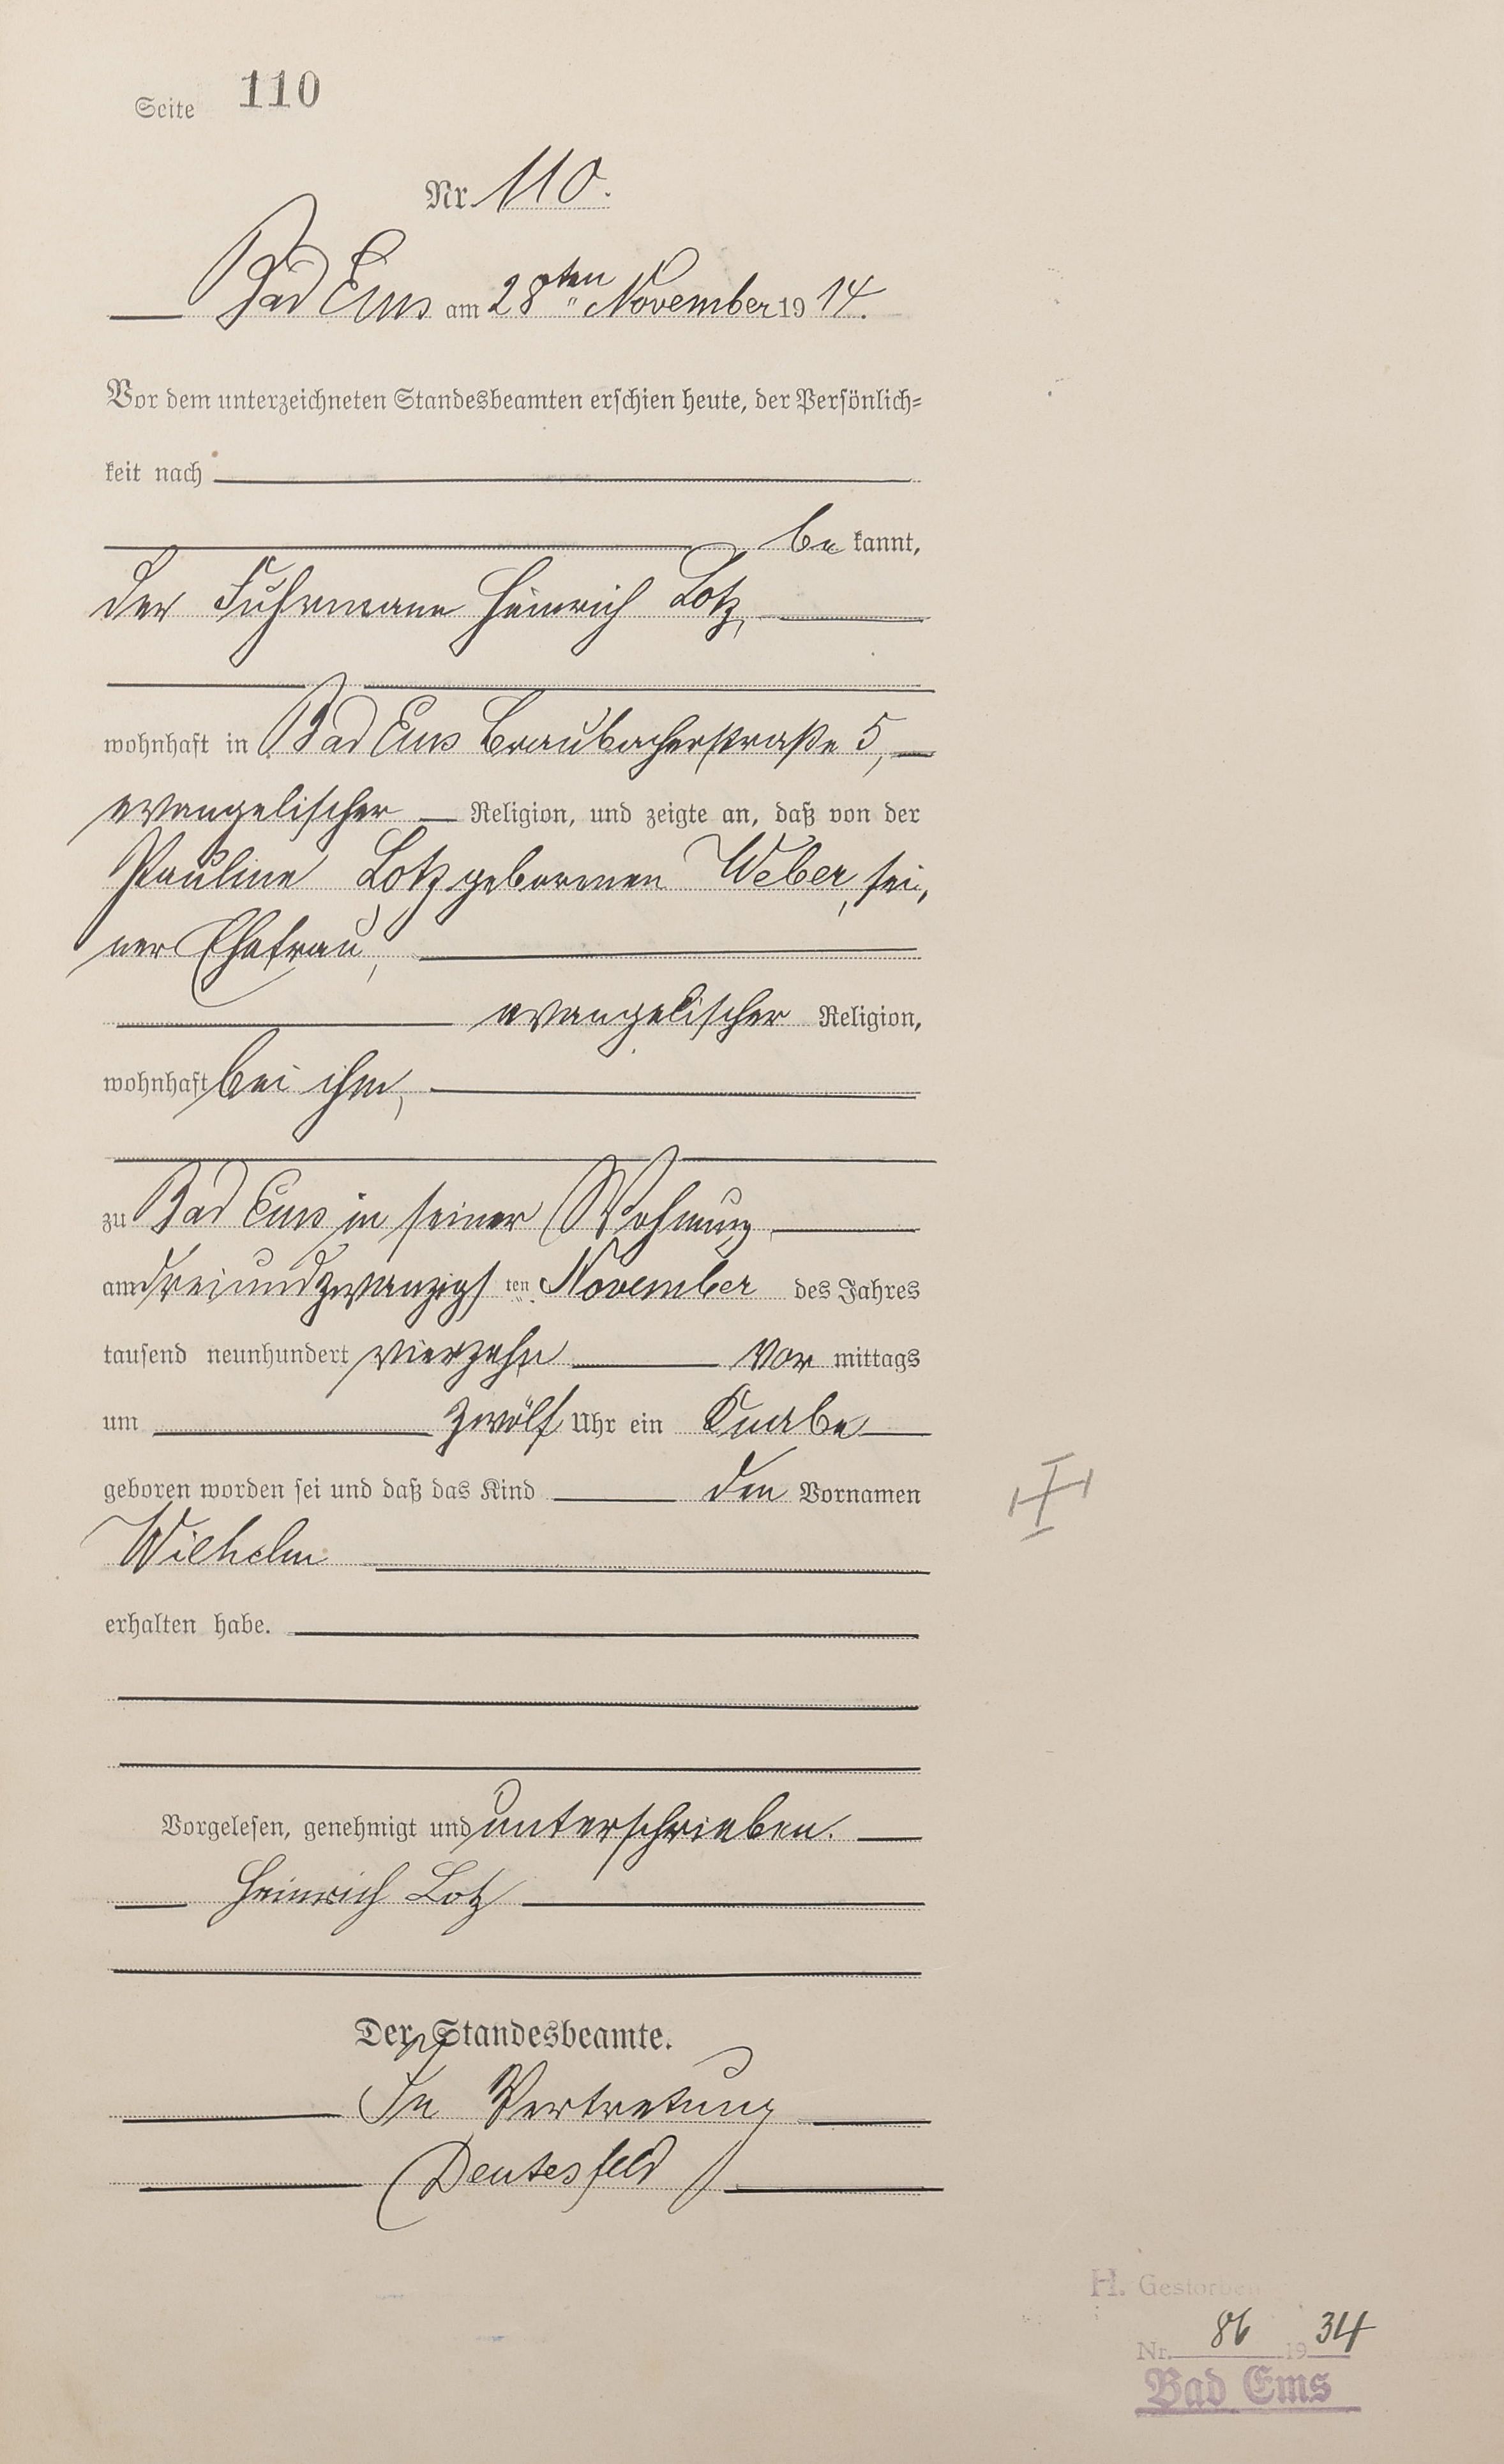 Seite 110
Nr. 110.
Bad Ems am 28ten November 1914.
Vor dem unterzeichneten Standesbeamten erschien heute, der Persönlich=
keit nach
be kannt,
der Fuhrmann Heinrich Lotz,
wohnhaft in Bad Ems Braubacherstraße 5,
evangelischer Religion, und zeigte an, daß von der
Pauline Lotz gebornen Weber, sei,
ner Ehefrau,
evangelischer Religion,
wohnhaft bei ihm,
zu Bad Ems in seiner Wohnung
am dreiundzwanzigsten November des Jahres
tausend neunhundert vierzehn Vor mittags
um zwölf Uhr ein Knabe
geboren worden sei und daß das Kind den Vornamen
Wilhelm
erhalten habe.
Vorgelesen, genehmigt und unterschrieben.
Heinrich Lotz
Der Standesbeamte.
In Vertretung
Deutesfeld
H. Gestorben
Nr. 86 1934
Bad Ems